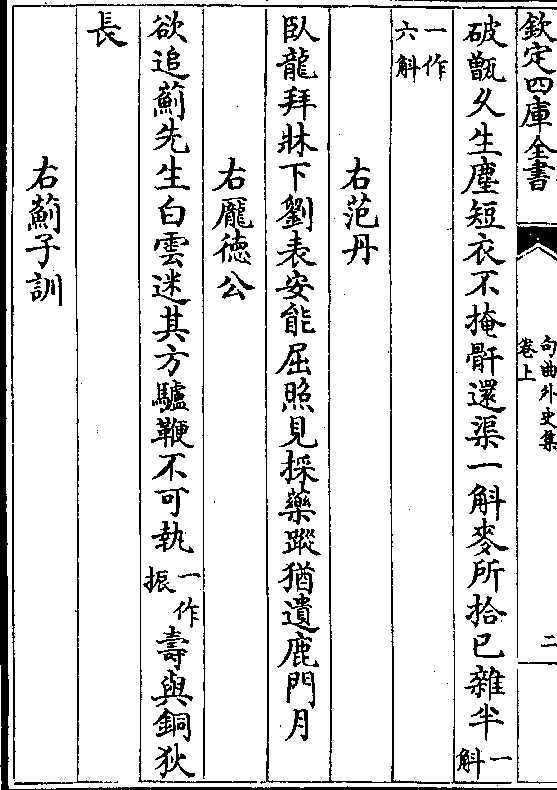 欽定四庫全書
句曲外史集
卷上
二
破甑久生塵短衣不掩骭還渠一斛麥所拾已雜半一斛
一作六斛
右范丹
臥龍拜牀下劉表安能屈照見採藥蹤猶遺鹿門月
右龐德公
欲追薊先生白雲迷其方驢鞭不可執一作振壽與銅狄
長
右薊子訓